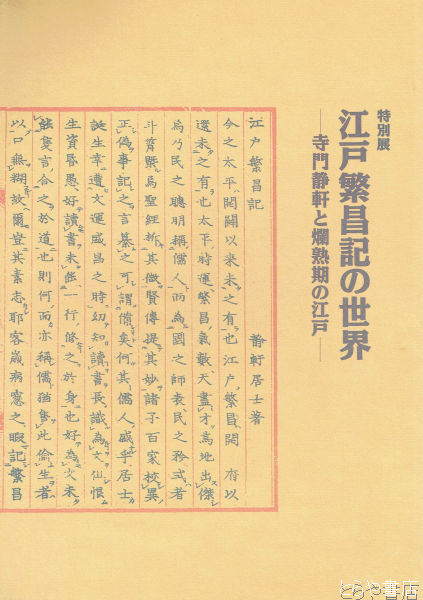 特別展
江戸繁昌記の世界
―寺門静軒と爛熟期の江戸―
江戸繁昌記
静軒居士著
今之太平開闢以来未之有也江戸繁昌開府以
還未之有也太平時運繁昌氣數天盡才為地出傑
為乃民之聰明稱儒人而為國之師表民之矜式者
斗筲 聖經 其微賢傳 其妙諸子百家校異
正偽事記之言纂之可謂備矣何其儒人盛乎居士
誕生幸遭文運盛昌之時幼知讀書長識為文仙恨
生資昏愚好讀書未能一行修之於身也好為文未
能一言合之於道也則何而亦稱儒 此偷生者
以口無糊故爾豈其素志耶客歳病窓之暇記繁昌
とらや書店